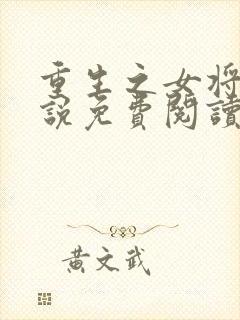 重生之女将
說免費閱讀
黃文武